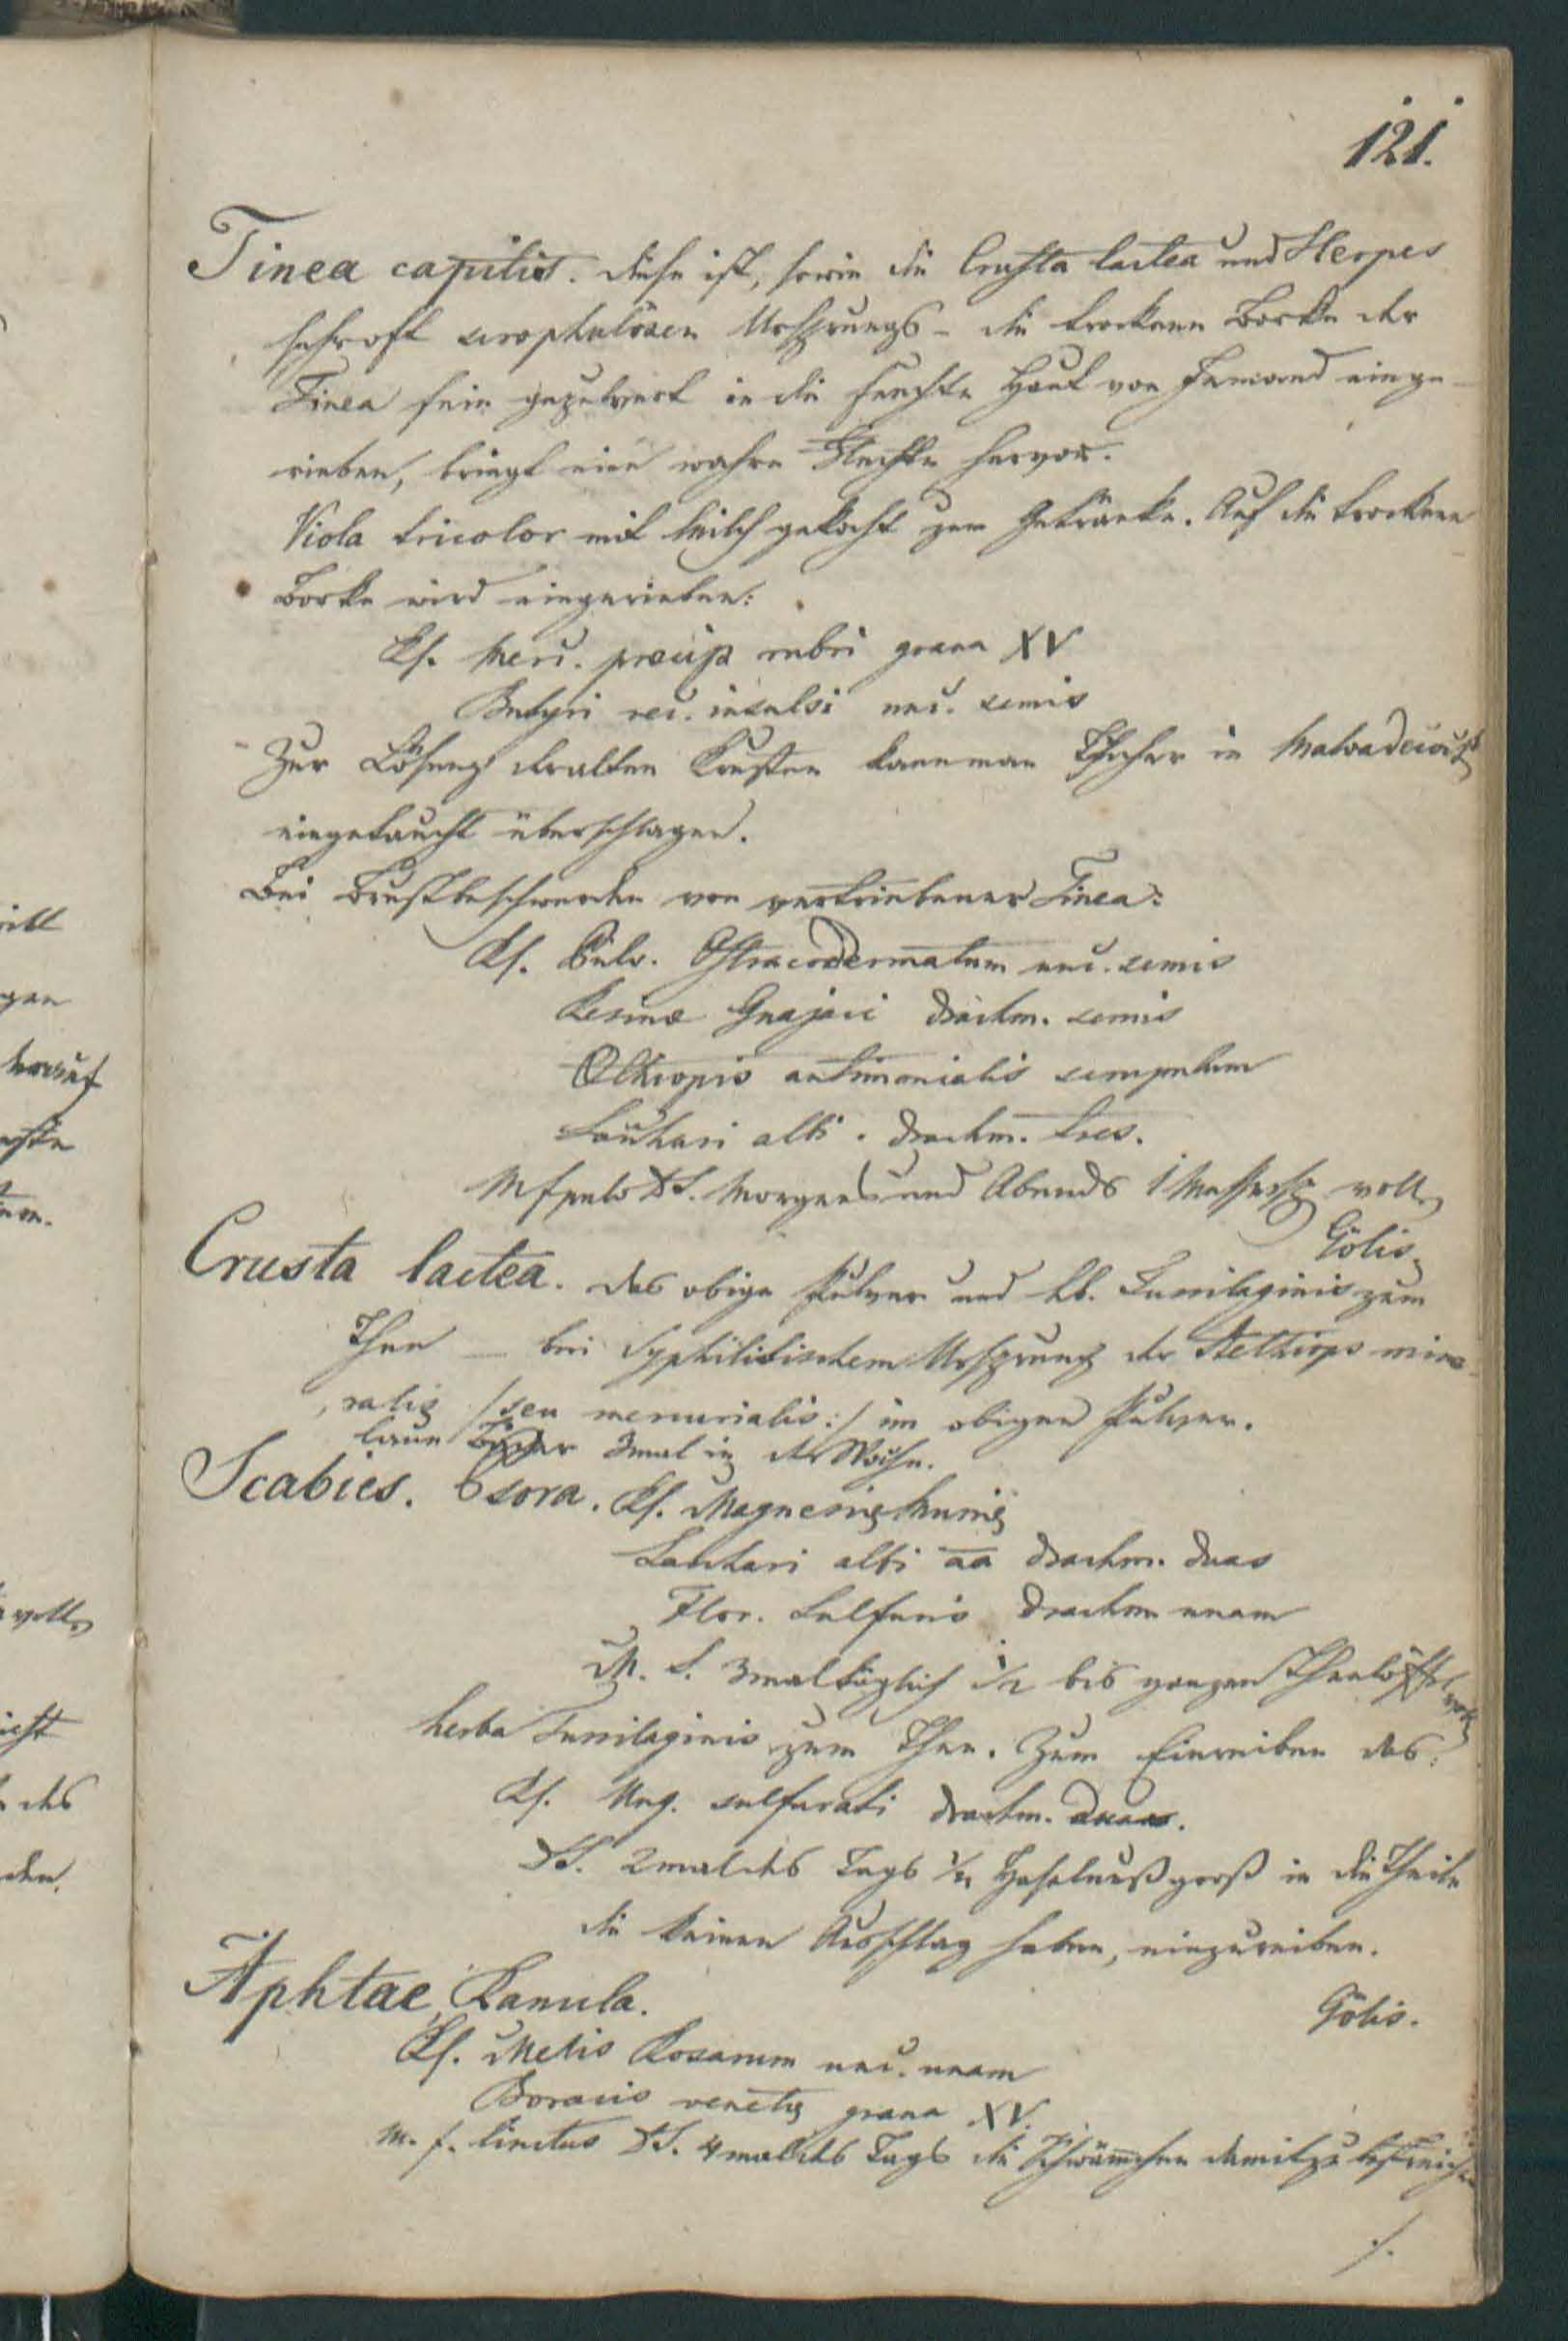 121.
Tinea capitis. diese ist, sowie die Crusta lactea und Herpes
sehr oft scrophulösen Ursprungs - die trockene Borke der
Tinea fein gepulvert in die feuchte Haut von Jemand einge-
rieben, bringt eine wahre Flechte hervor.
Viola tricolor mit Milch gekocht zum Getränke. Auf die trockene
Borke wird eingerieben:
Rp. Merc. praecip rubri grana XV
Butyri rec. insalsi unc. semis
Zur Lösung der alten Krusten kann man Tücher in Malvadecoct
eingetaucht überschlagen.
Bei Brustbeschwerden von vertriebener Tinea:
Rp. Pulv. Ostracodermatum unc. semis
Resinae Guajaci drachm. semis
Aethiopis antimonialis scrupulum
Sacchari albi . drachm. tres.
M f pulv DS. Morgens und Abends 1 Messersp. voll.
Gölis.
Crusta lactea. das obige Pulver und hb. Tussilaginis zum
Thee — bei Syphilitischem Ursprung der Aethiops mine-
ralis /:seu mercurialis:/ im obigen Pulver.
laue Bäder 3mal in der Woche.
Scabies. Psora. Rp. Magnesiae Muriae
Sacchari albi aa drachm. duas
Flor. Sulfuris drachm unam
M. S. 3mal täglich 1/2 bis ganzen Theelöffel voll
herba Tussilaginis zum Thee. Zum Einreiben das:
Rp. Ung. sulfurati drachm. duas.
DS. 2mal des Tags 1/2 Haselnuß groß in die Theile
die keinen Ausschlag haben, einzureiben.
Gölis.
Aphtae, Ranula.
Rp. Mellis Rosarum unc. unam
Boracis venetae grana XV.
M. f. linctus DS. 4mal des Tags die Schwämchen damit zu bestreichen
./.